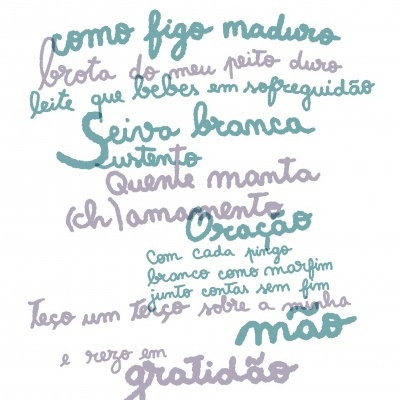 como figo maduro
brota do meu peito duro
leite que bebes em sofreguidão
Seiva branca
Sustento
Quente manta
(ch)amamento
Oração
Com cada pingo
branco como marfim
junto contas sem fim
Teço um terço sobre a minha
mão
e rezo em
gratidão